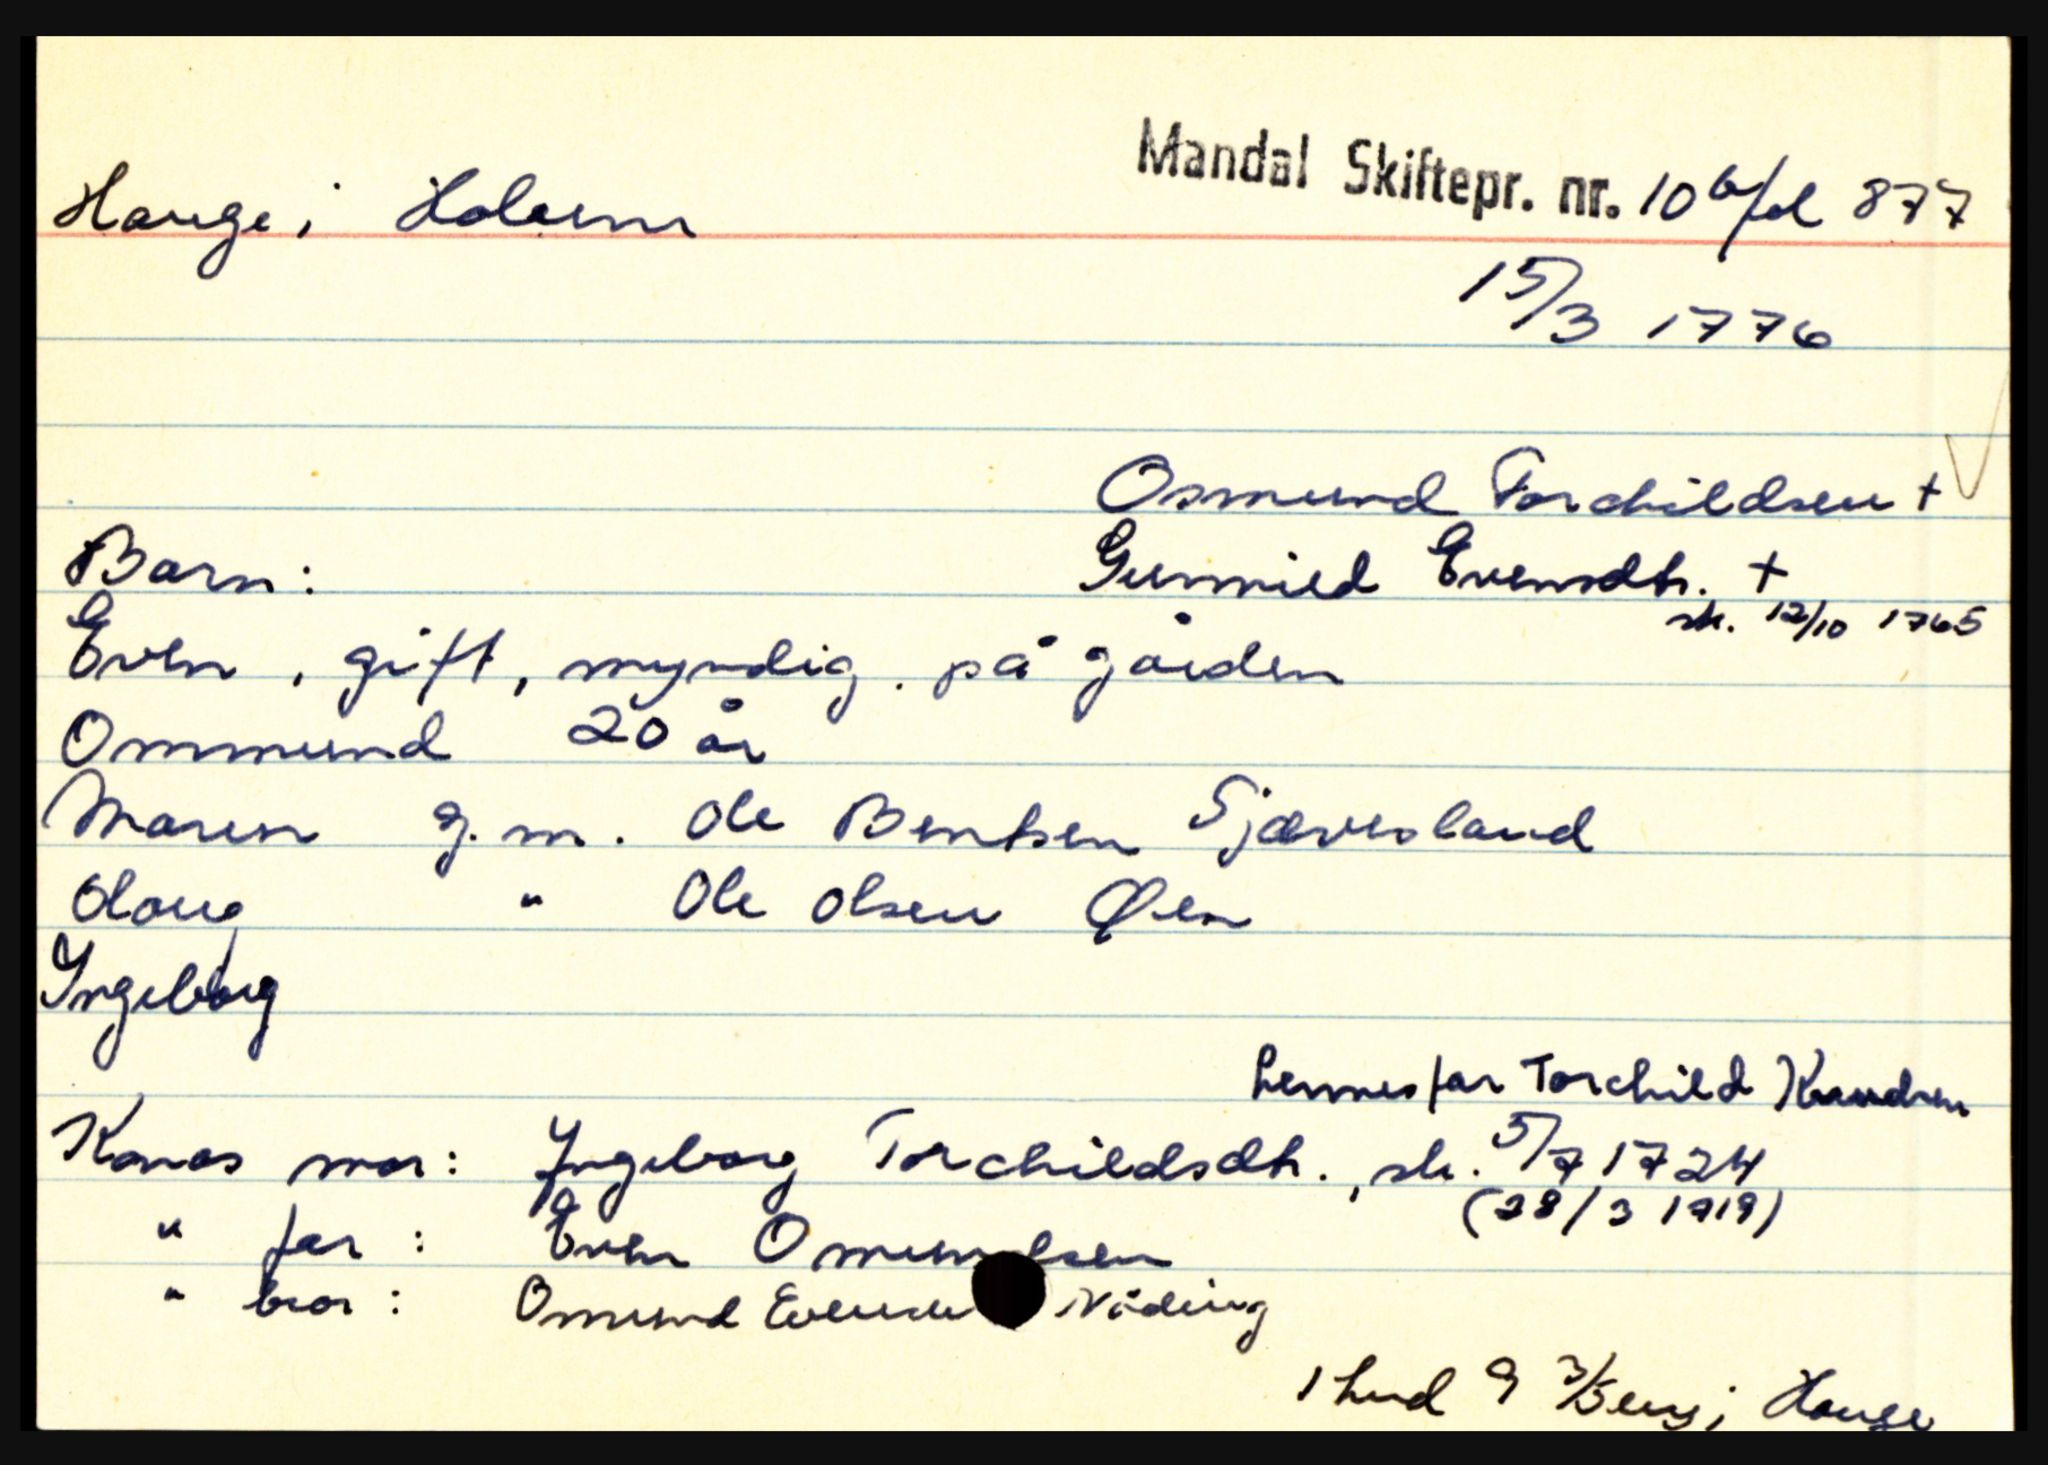 Mandal Skiftepr. nr. 10 b/fol 877
Hauge i Holum
15/3 1776
Osmund Torchildsen +
Barn: Gunnild Evensdtr. +
sk. 12/10 1765
Even, gift, myndig. på gården
Ommund 20 år
Maren g. m. Ole Bentsen Sjævesland
Olaug " Ole Olsen Øen
Ingeborg
hennes far Torchild Knudsen
Konas mor: Ingeborg Torchildsdtr., sk. 5/7 1724
(28/3 1719)
" far: Even Omundsen
" bror: Omund Evensen Nöding
1 hud 9 3/5 eng i Hauge